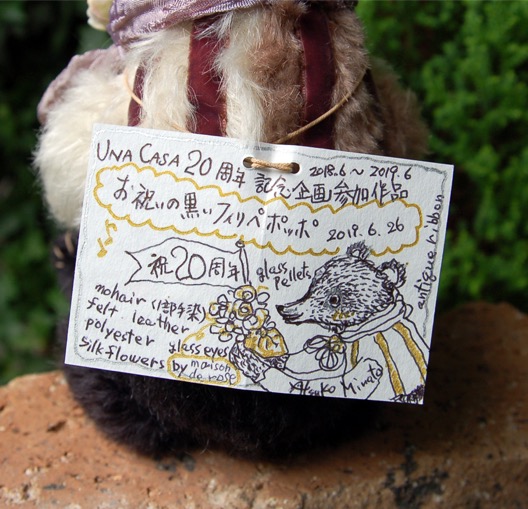 UNA CASA 20周年 記念企画参加作品
2018.6~2019.6
お祝いの黒いフィリペポッポ
2019.6.26
祝20周年
glass pellets
antique ribbon
mohair (1部手染)
felt leather
polyester glasseyes
silkflowers by maison de rose
Atsuko Minato